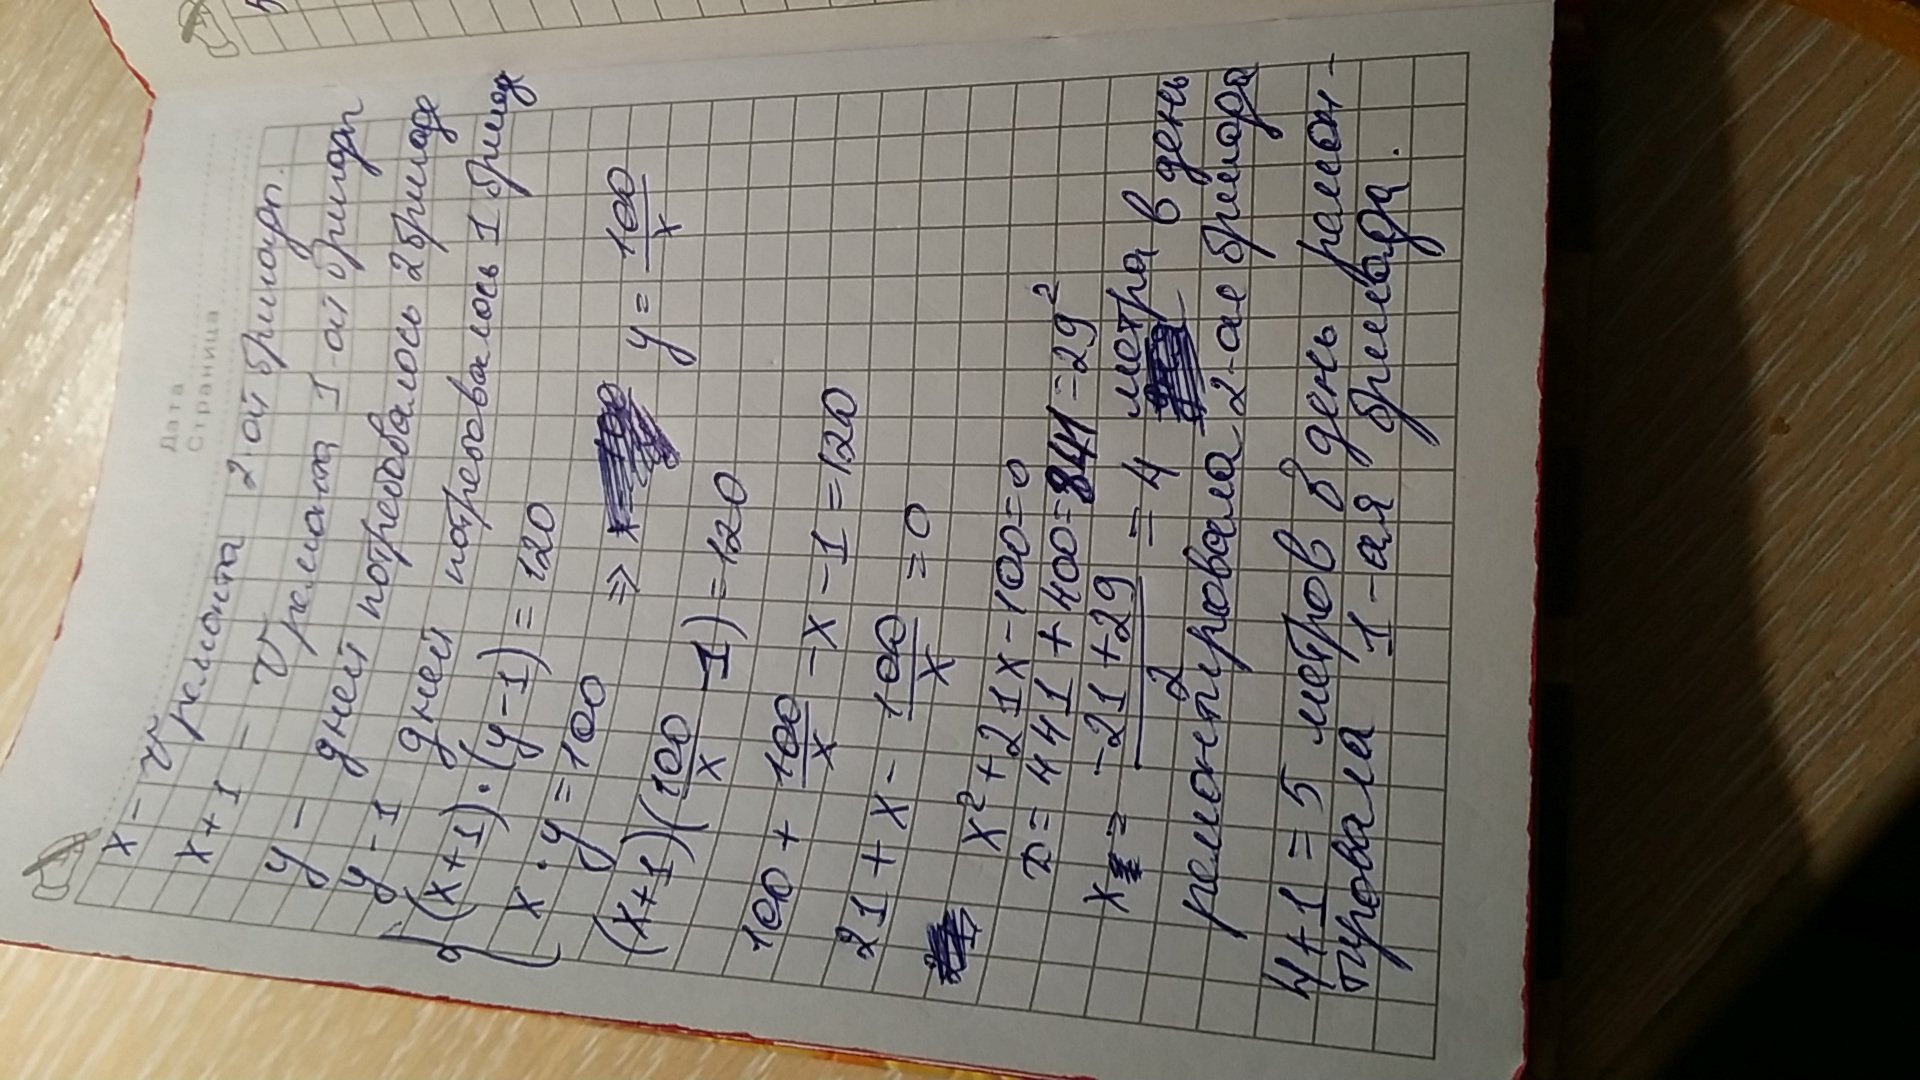 Дата
Страница
x - v ремонта 2-ой бригады.
x+1 - v ремонта 1-ой бригады
y - дней потребовалось 2 бригаде
y-1 дней потребовалось 1 бригад
(x+1)·(y-1)=120
x·y=100 => y=100/x
(x+1)(100/x-1)=120
100+100/x-x-1=120
21+x-100/x=0
x²+21x-100=0
D=441+400=841=29²
x=(-21+29)/2=4 метра в день
ремонтировала 2-ая бригада
4+1=5 метров в день ремон-
тировала 1-ая бригада.